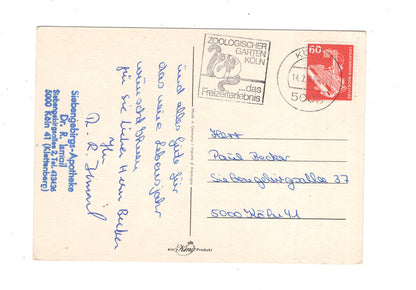 ZOOLOGISCHER
GARTEN
KÖLN
...das
Freizeiterlebnis
60
14.2
und alles Gute für
das neue Lebensjahr
wünscht Ihnen
für Sie lieber Herr Becker
Ihr
Dr. R. Ismail
Siebengebirgs-Apotheke
Dr. R. Ismail
Siebengebirgsallee 2, Tel. 413436
5000 Köln 41 (Klettenberg)
Herrn
Paul Becker
Siebengebirgsallee
5000 Köln 41
King
Produkt